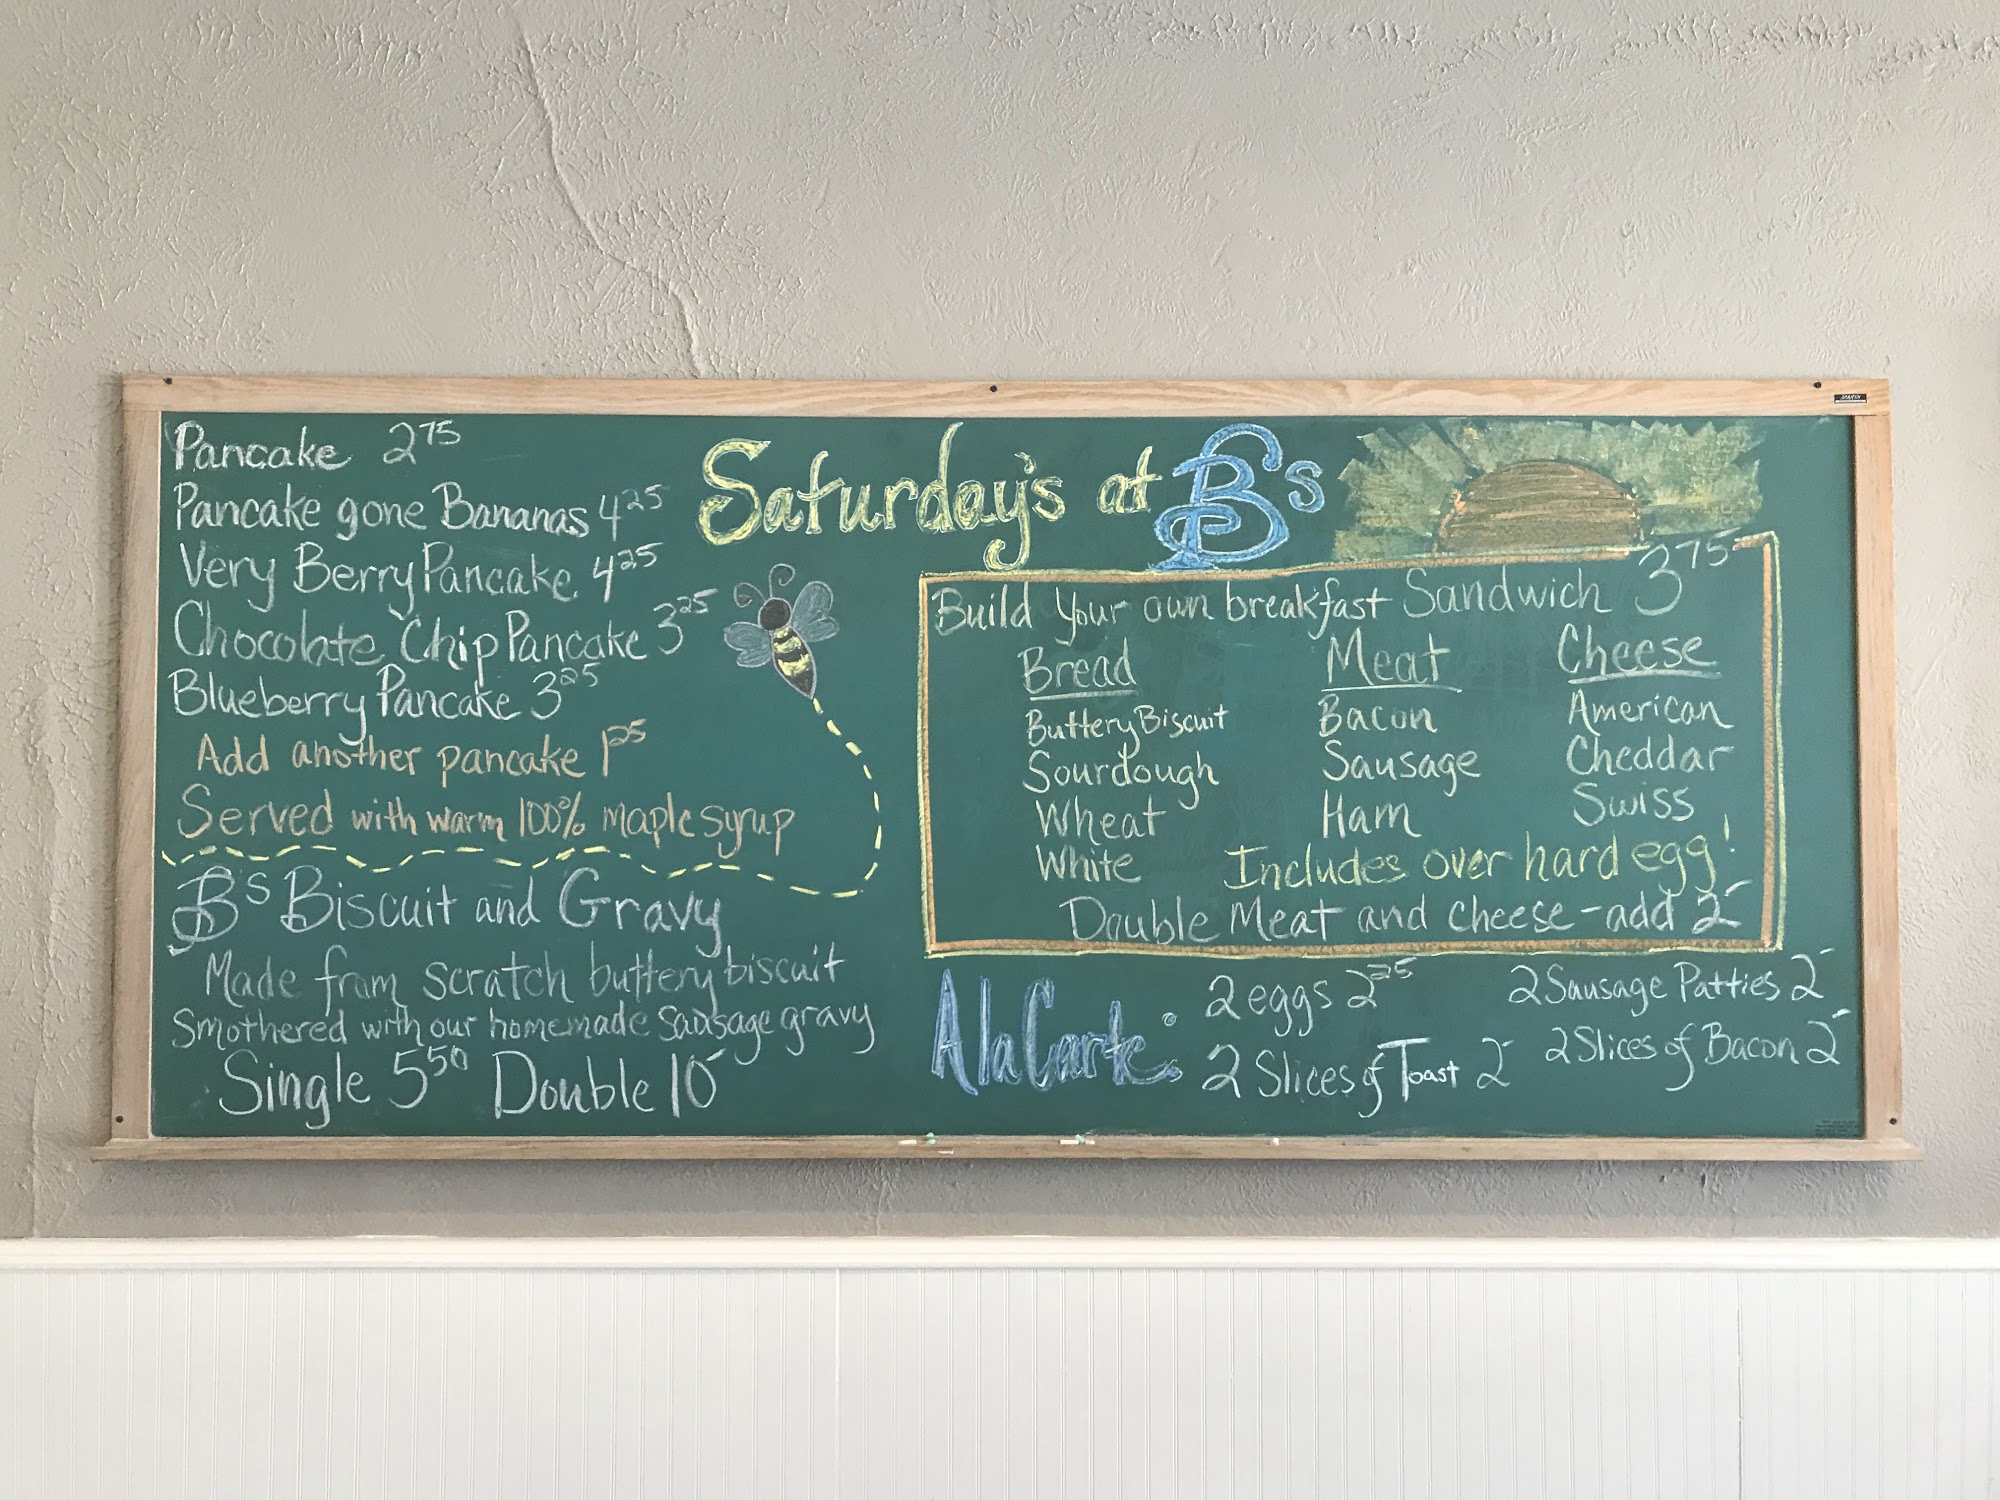 Pancake 2 75
Pancake gone Bananas 4 25
Very Berry Pancake 4 25
Chocolate Chip Pancake 3 25
Blueberry Pancake 3 25
Add another pancake 1 25
Served with warm 100% maple syrup
B's Biscuit and Gravy
Made from scratch buttery biscuit
Smothered with our homemade sausage gravy
Single 5 50 Double 10 -
Saturday's at B's
Build Your own breakfast Sandwich 3 75
Bread Meat Cheese
Buttery Biscuit Bacon American
Sourdough Sausage Cheddar
Wheat Ham Swiss
White Includes over hard egg!
Double Meat and cheese - add 2 -
A la Carte:
2 eggs 2 25 2 Sausage Patties 2 -
2 Slices of Toast 2 - 2 Slices of Bacon 2 -